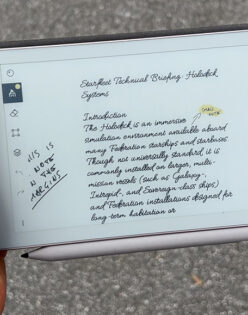 Starfleet Technical Briefing: Holodeck
Systems
SMALL NOTE
Introduction
The Holodeck is an immersive
simulation environment available aboard
many Federation starships and starbases.
Though not universally standard, it is
commonly installed on larger, multi-
mission vessels (such as Galaxy-,
Intrepid-, and Sovereign-class ships)
and Federation installations designed for
long-term habitation or
THIS IS
A NOTE
IN THE
MARGINS